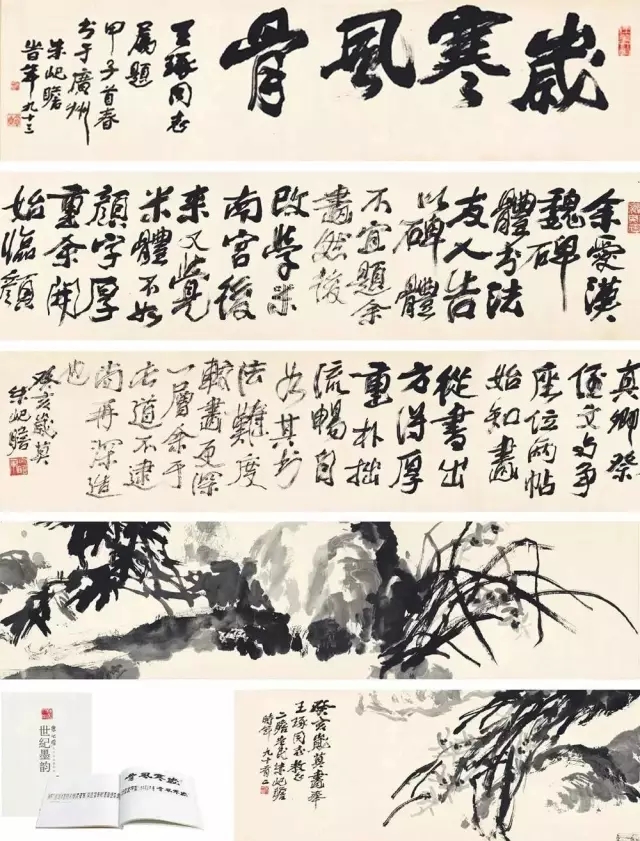 歲寒風骨
王琢同志
屬題
甲子首春
书于廣州
朱屺瞻
时年九十三
余愛漢
魏碑
體书法
友人告
以碑體
不宜題余
畫然後
改學米
南宮後
来又覺
米體不如
顔字厚
重余開
始臨顔
真卿祭
侄文与争
座位两帖
始知畫
從書出
方得厚
重朴拙
流暢自
如其
法難度
較畫更深
一層余于
書道不逮
尚再深造
也
癸亥歲莫
朱屺瞻
世纪墨韵
歲寒風骨
癸亥歲莫畫奉
王琢同志教正
二瞻老民朱屺瞻
時年九十有二